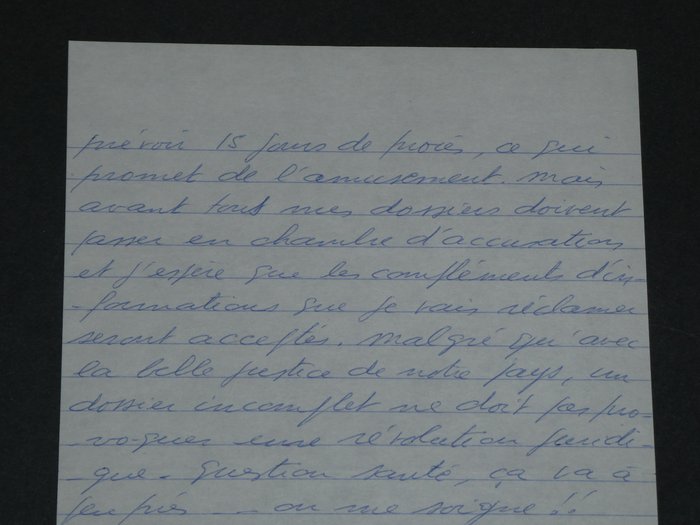 prévoir 15 jours de procès, ce qui
promet de l'amusement. Mais
avant tout mes dossiers doivent
passer en chambre d'accusation
et j'espère que les compléments d'in-
-formations que je vais réclamer
seront acceptés. Malgré qu'avec
la belle justice de notre pays, un
dossier incomplet ne doit pas pro-
-voquer une révolution juridi-
-que. Question santé, ça va à
peu près - on me soigne !!